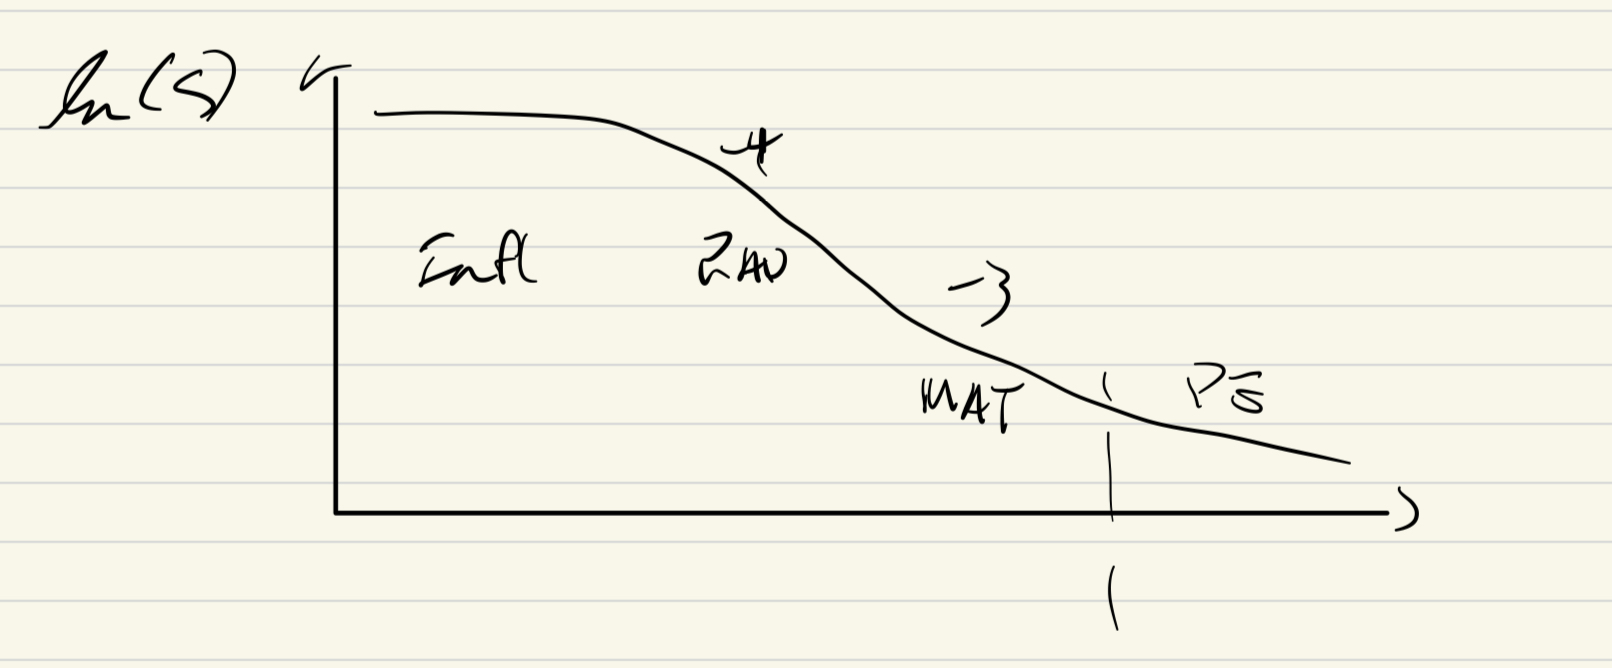 ln(S)
-4
Infl RAD
-3
MAT PE